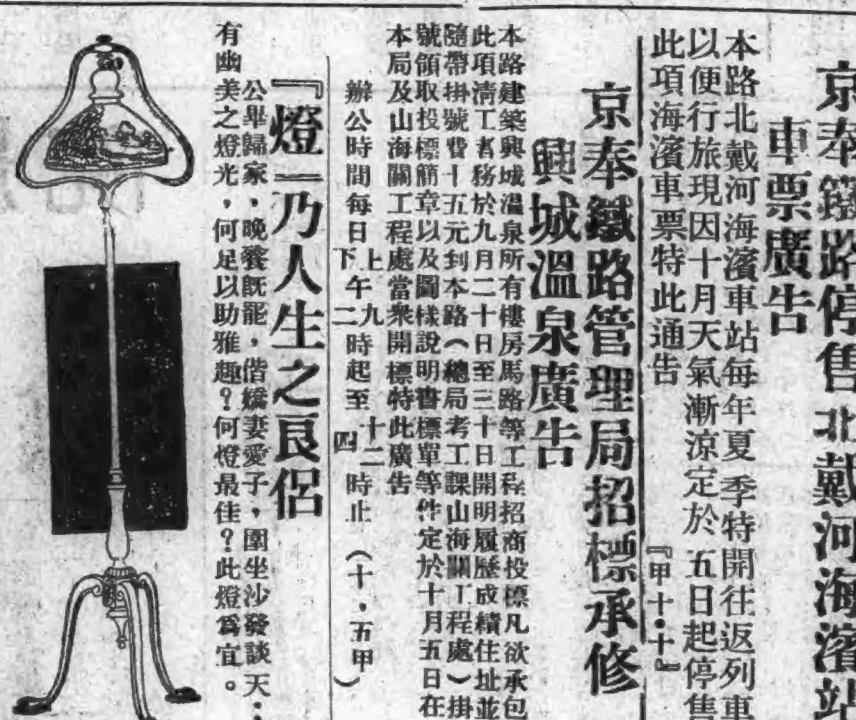 京奉鐵路停售北戴河海濱站
車票廣告
本路北戴河海濱車站每年夏季特開往返列車
以便行旅現因十月天氣漸涼定於五日起停售
此項海濱車票特此通告
『甲十・十』
京奉鐵路管理局招標承修
興城溫泉廣告
本路建築興城溫泉所有樓房馬路等工程招商投標凡欲承包
此項淸工者務於九月二十日至三十日開明履歷成績住址並
隨帶掛號費十五元到本路(總局考工課山海關工程處)掛
號領取投標簡章以及圖樣說明書標單等件定於十月五日在
本局及山海關工程處當衆開標特此廣告
辦公時間每日上午九時起至十二時止
下午二時起至四時止
(十・五甲)
『燈』乃人生之良侶
公畢歸家,晚餐旣罷,偕嬌妻愛子,圍坐沙發談天,
有幽美之燈光,何足以助雅趣?何燈最佳?此燈爲宜。